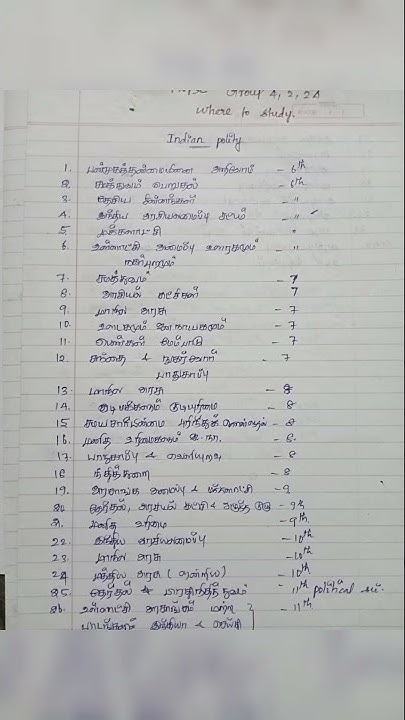 Group 4, 2, 2A
where to study.
Indian polity
1. பன்முகத்தன்மையினை அறிவோம் - 6th
2. சமத்துவம் பெறுதல் - 6th
3. தேசிய சின்னங்கள் - "
4. இந்திய அரசியலமைப்பு சட்டம் - "
5. மக்களாட்சி "
6. உள்ளாட்சி அமைப்பு ஊரகமும் - "
நகர்புறமும்
7. சமத்துவம் - 7
8. அரசியல் கட்சிகள் 7
9. மாநில அரசு - 7
10. ஊடகமும் ஜனநாயகமும் - 7
11. பெண்கள் மேம்பாடு - 7
12. சந்தை & நுகர்வோர் - 7
பாதுகாப்பு
13. மாநில அரசு - 8
14. குடிமக்களும் குடியுரிமை - 8
15 சமயசார்பின்மை புரிந்துக் கொள்ளுதல் - 8
16. மனித உரிமைகளும் ஐ.நா. - 8
17. பாதுகாப்பு & வெளியுறவு - 8
18 நீதித்துறை - 8
19. அரசாங்க அமைப்பு & மக்களாட்சி - 9
20 தேர்தல், அரசியல் கட்சி & அழுத்த குழு - 9th
21. மனித உரிமை - 9th
22. இந்திய அரசியலமைப்பு - 10th
23. மாநில அரசு - 10th
24 மத்திய அரசு ( ஒன்றிய) - 10th
25. தேர்தல் & பிரதிநிதித்துவம் - 11th political sci.
26. உள்ளாட்சி அரசாங்கம் - 11th
பாடங்களும் இந்தியா &